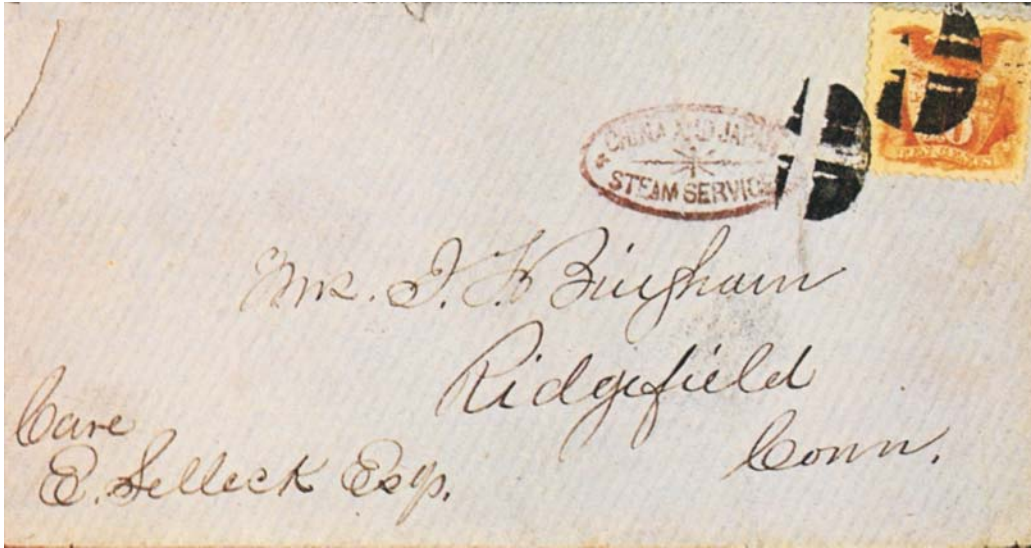 CHINA AND JAPAN
STEAM SERVICE
10
TEN CENTS
Mrs. J. F. Bingham
Ridgefield
Conn.
Care
E. Selleck Esq.